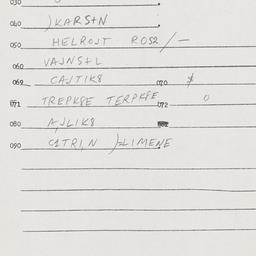 030
040 )KARS+N
050 HELROJT ROS2/—
060 VAJNS+L
069 CAJTIK8 070 $
071 TREPK8E TERPK8E 072 0
080 AJLIK8
090 C1TRIN )=LIMENE